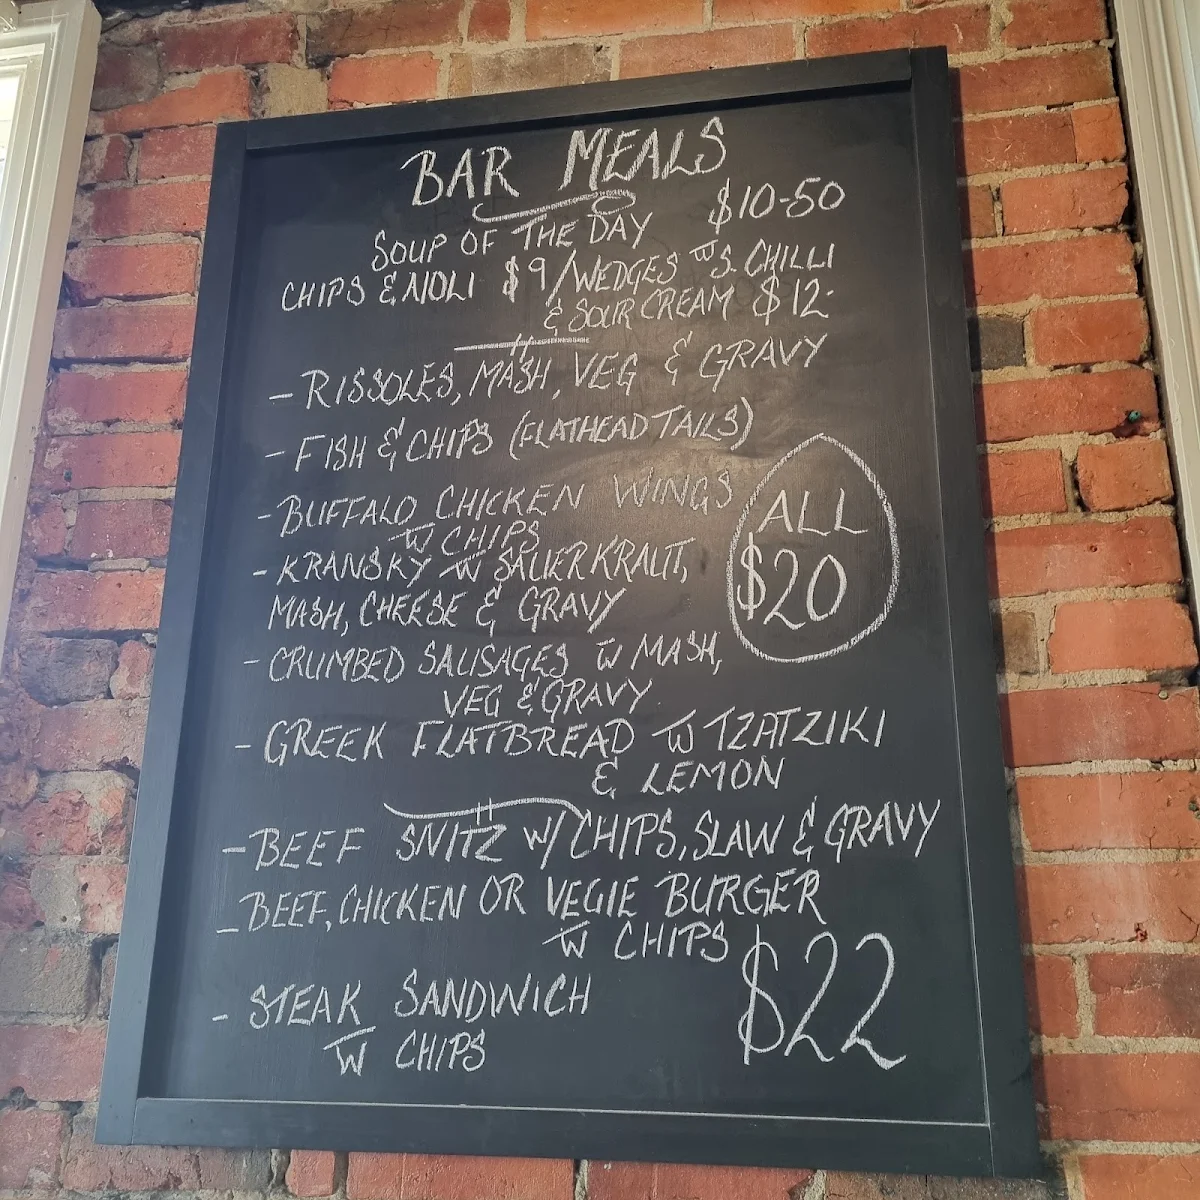 BAR MEALS
SOUP OF THE DAY $10-50
CHIPS & AIOLI $9/WEDGES W S. CHILLI
& SOUR CREAM $12-
- RISSOLES, MASH, VEG & GRAVY
- FISH & CHIPS (FLATHEAD TAILS)
- BUFFALO CHICKEN WINGS
W CHIPS
- KRANSKY W SAUERKRAUT,
MASH, CHEESE & GRAVY
ALL
$20
- CRUMBED SAUSAGES W MASH,
VEG & GRAVY
- GREEK FLATBREAD W TZATZIKI
& LEMON
- BEEF SNITZ W/ CHIPS, SLAW & GRAVY
- BEEF, CHICKEN OR VEGIE BURGER
W CHIPS
- STEAK SANDWICH
W CHIPS
$22